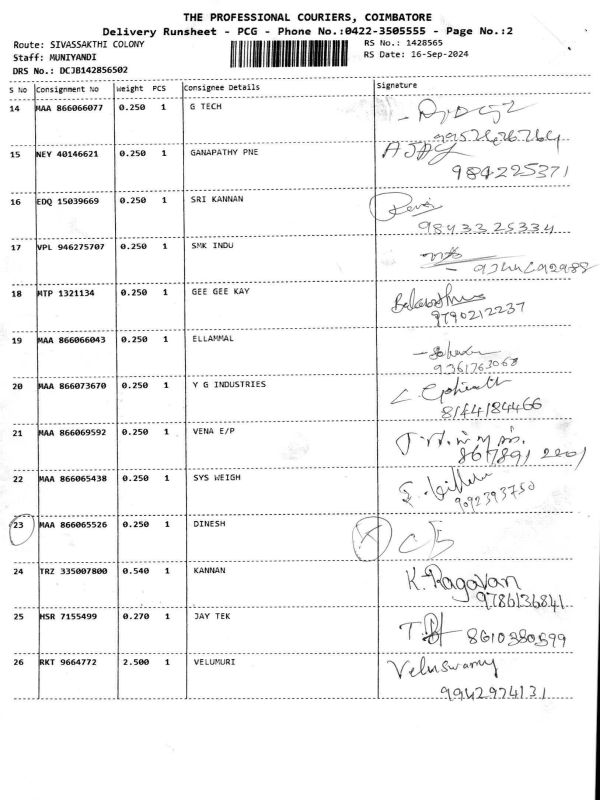 THE PROFESSIONAL COURIERS, COIMBATORE
Delivery Runsheet - PCG - Phone No.:0422-3505555 - Page No.:2
Route: SIVASSAKTHI COLONY RS No.: 1428565
Staff: MUNIYANDI RS Date: 16-Sep-2024
DRS No.: DCJB142856502
S No Consignment No Weight PCS Consignee Details Signature
14 MAA 866066077 0.250 1 G TECH
15 NEY 40146621 0.250 1 GANAPATHY PNE AJAY
984225371
16 EDQ 15039669 0.250 1 SRI KANNAN
9843325334
17 VPL 946275707 0.250 1 SMK INDU
18 MTP 1321134 0.250 1 GEE GEE KAY
9790212237
19 MAA 866066043 0.250 1 ELLAMMAL
9361763068
20 MAA 866073670 0.250 1 Y G INDUSTRIES
8144184466
21 MAA 866069592 0.250 1 VENA E/P
22 MAA 866065438 0.250 1 SYS WEIGH
9092393750
23 MAA 866065526 0.250 1 DINESH
24 TRZ 335007800 0.540 1 KANNAN K. Ragavan
9786136841
25 HSR 7155499 0.270 1 JAY TEK
8610380599
26 RKT 9664772 2.500 1 VELUMURI Veluswamy
9942974131